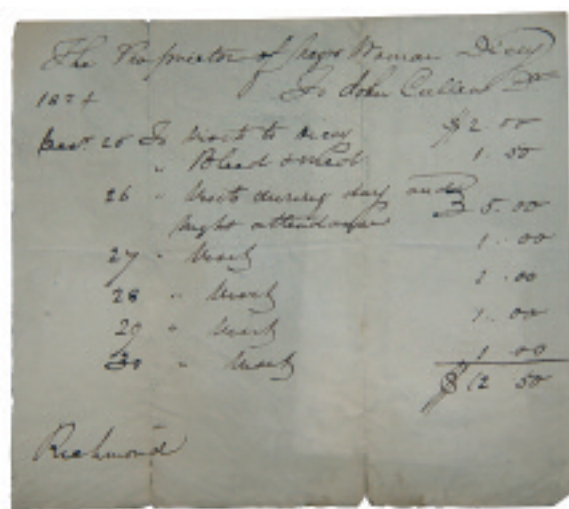 The Proprietor of Negro Woman Dicey
1824 To John Cullen Dr
26 To Visit to Dicey $2.00
" Bleed & Med 1.50
26 " Visits during day and
night attendance 5.00
27 " Visit 1.00
28 " Visit 1.00
29 " Visit 1.00
30 " Visit 1 00
$12 50
Richmond